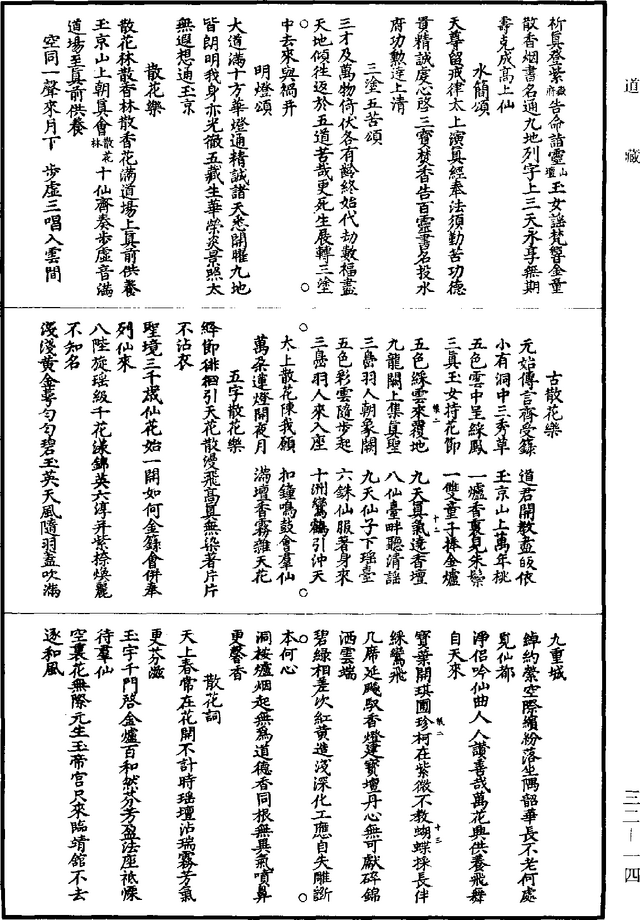 道藏
祈真登紫微告命詣靈山壇玉女謠梵響金童
散香烟書名通九地列字上三天永享無期
壽克成高上仙
水簡頌
天尊留戒律太上演真經奉法須勤苦功德
貫精誠虔心啓三寶焚香告百靈書名投水
府功勳達上清
三塗五苦頌
三才及萬物倚伏各有齡終始代劫數福盡
天地傾往返於五道苦哉更死生展轉三塗
中去來與禍并
明燈頌
大道滿十方華燈通精誠諸天悉開曜九地
皆朗明我身亦光徹五藏生華榮炎景照太
無遐想通玉京
散花樂
散花林散香林散香花滿道場上真前供養
玉京山上朝真會散花林十仙齊奏步虛音滿
道場至真前供養
空同一聲來月下 步虛三唱入雲間
古散花樂
元始傳言齊受籙 道君開教盡皈依
小有洞中三秀草 玉京山上萬年桃
五色雲中呈綵鳳 一爐香裏見朱鬃
三真玉女持花節 一雙童子捧金爐
五色綵雲來覆地 九天真氣達香壇
九龍闕上集真聖 八仙臺畔聽清謠
三島羽人朝象闕 九天仙子下瑤臺
五色彩雲隨步起 六銖仙服著身來
三島羽人來入座 十洲鸞鶴引沖天
太上散花陳我願 扣鐘鳴鼓會羣仙
萬朵蓮燈開夜月 滿壇香霧雜天花
五字散花樂
絳節徘徊引天花散漫飛高真無染著片片
不沾衣
聖境三千歲仙花始一開如何金籙會併奉
列仙來
八陛旋瑤級千花漾錦英六淳并紫捺煥麗
不知名
淺淺黃金萼勻勻碧玉英天風隨羽蓋吹滿
九重城
綽約縈空際繽紛落坐隅韶華長不老何處
覓仙都
淨侶吟仙曲人人讚善哉萬花興供養飛舞
自天來
寶葉開琪圃珍柯在紫微不教蝴蝶採長伴
綵鸞飛
几席延飈馭香燈建寶壇丹心無可獻碎錦
洒雲端
碧綠相差次紅黃造淺深化工應自失雕斲
本何心
洞桉爐烟起無爲道德香同根無異氣噴鼻
更馨香
散花詞
天上春常在花開不計時瑤壇沾瑞霧芳氣
更芬滋
玉宇千門啓金爐百和然芬芳盈法座祗慄
待羣仙
空裏花無際元生玉帝宮只來臨靖館不去
逐和風
三二—一四